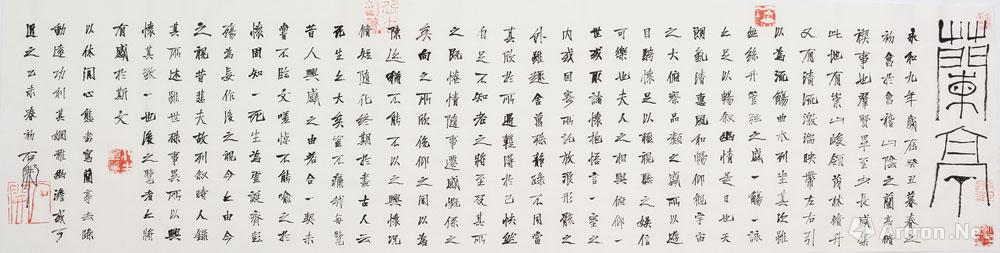 蘭亭
永和九年歲在癸丑暮春之
初會於會稽山陰之蘭亭脩
禊事也群賢畢至少長咸集
此地有崇山峻領茂林脩竹
又有清流激湍映帶左右引
以為流觴曲水列坐其次雖
無絲竹管弦之盛一觴一詠
亦足以暢敘幽情是日也天
朗氣清惠風和暢仰觀宇宙
之大俯察品類之盛所以遊
目騁懷足以極視聽之娛信
可樂也夫人之相與俯仰一
世或取諸懷抱悟言一室之
內或因寄所託放浪形骸之
外雖趣舍萬殊靜躁不同當
其欣於所遇暫得於己快然
自足不知老之將至及其所
之既惓情隨事遷感慨係之
矣向之所欣俛仰之間以為
陳迹猶不能不以之興懷況
脩短隨化終期於盡古人云
死生亦大矣豈不痛哉每覽
昔人興感之由若合一契未
嘗不臨文嗟悼不能喻之於
懷固知一死生為虛誕齊彭
殤為妄作後之視今亦由今
之視昔悲夫故列敘時人錄
其所述雖世殊事異所以興
懷其致一也後之覽者亦將
有感於斯文
以休閒心態書寫蘭亭去除
動遠功利其嫻雅幽澹或可
道之乙未春初
Artron.Net